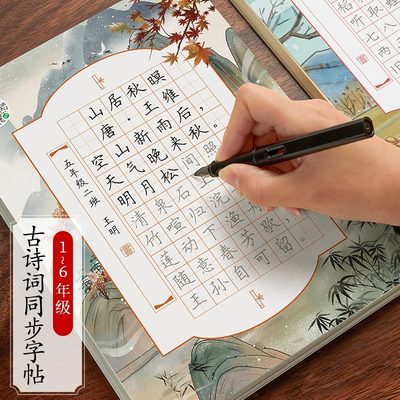 山居秋暝
唐·王维
空山新雨后，
天气晚来秋。
明月松间照
清泉石上
竹喧归浣
莲动下渔
随意春芳歇，
王孙自可留。
五年级二班 王明
古诗词同步字帖
1~6年级
稻
听取
七八
两